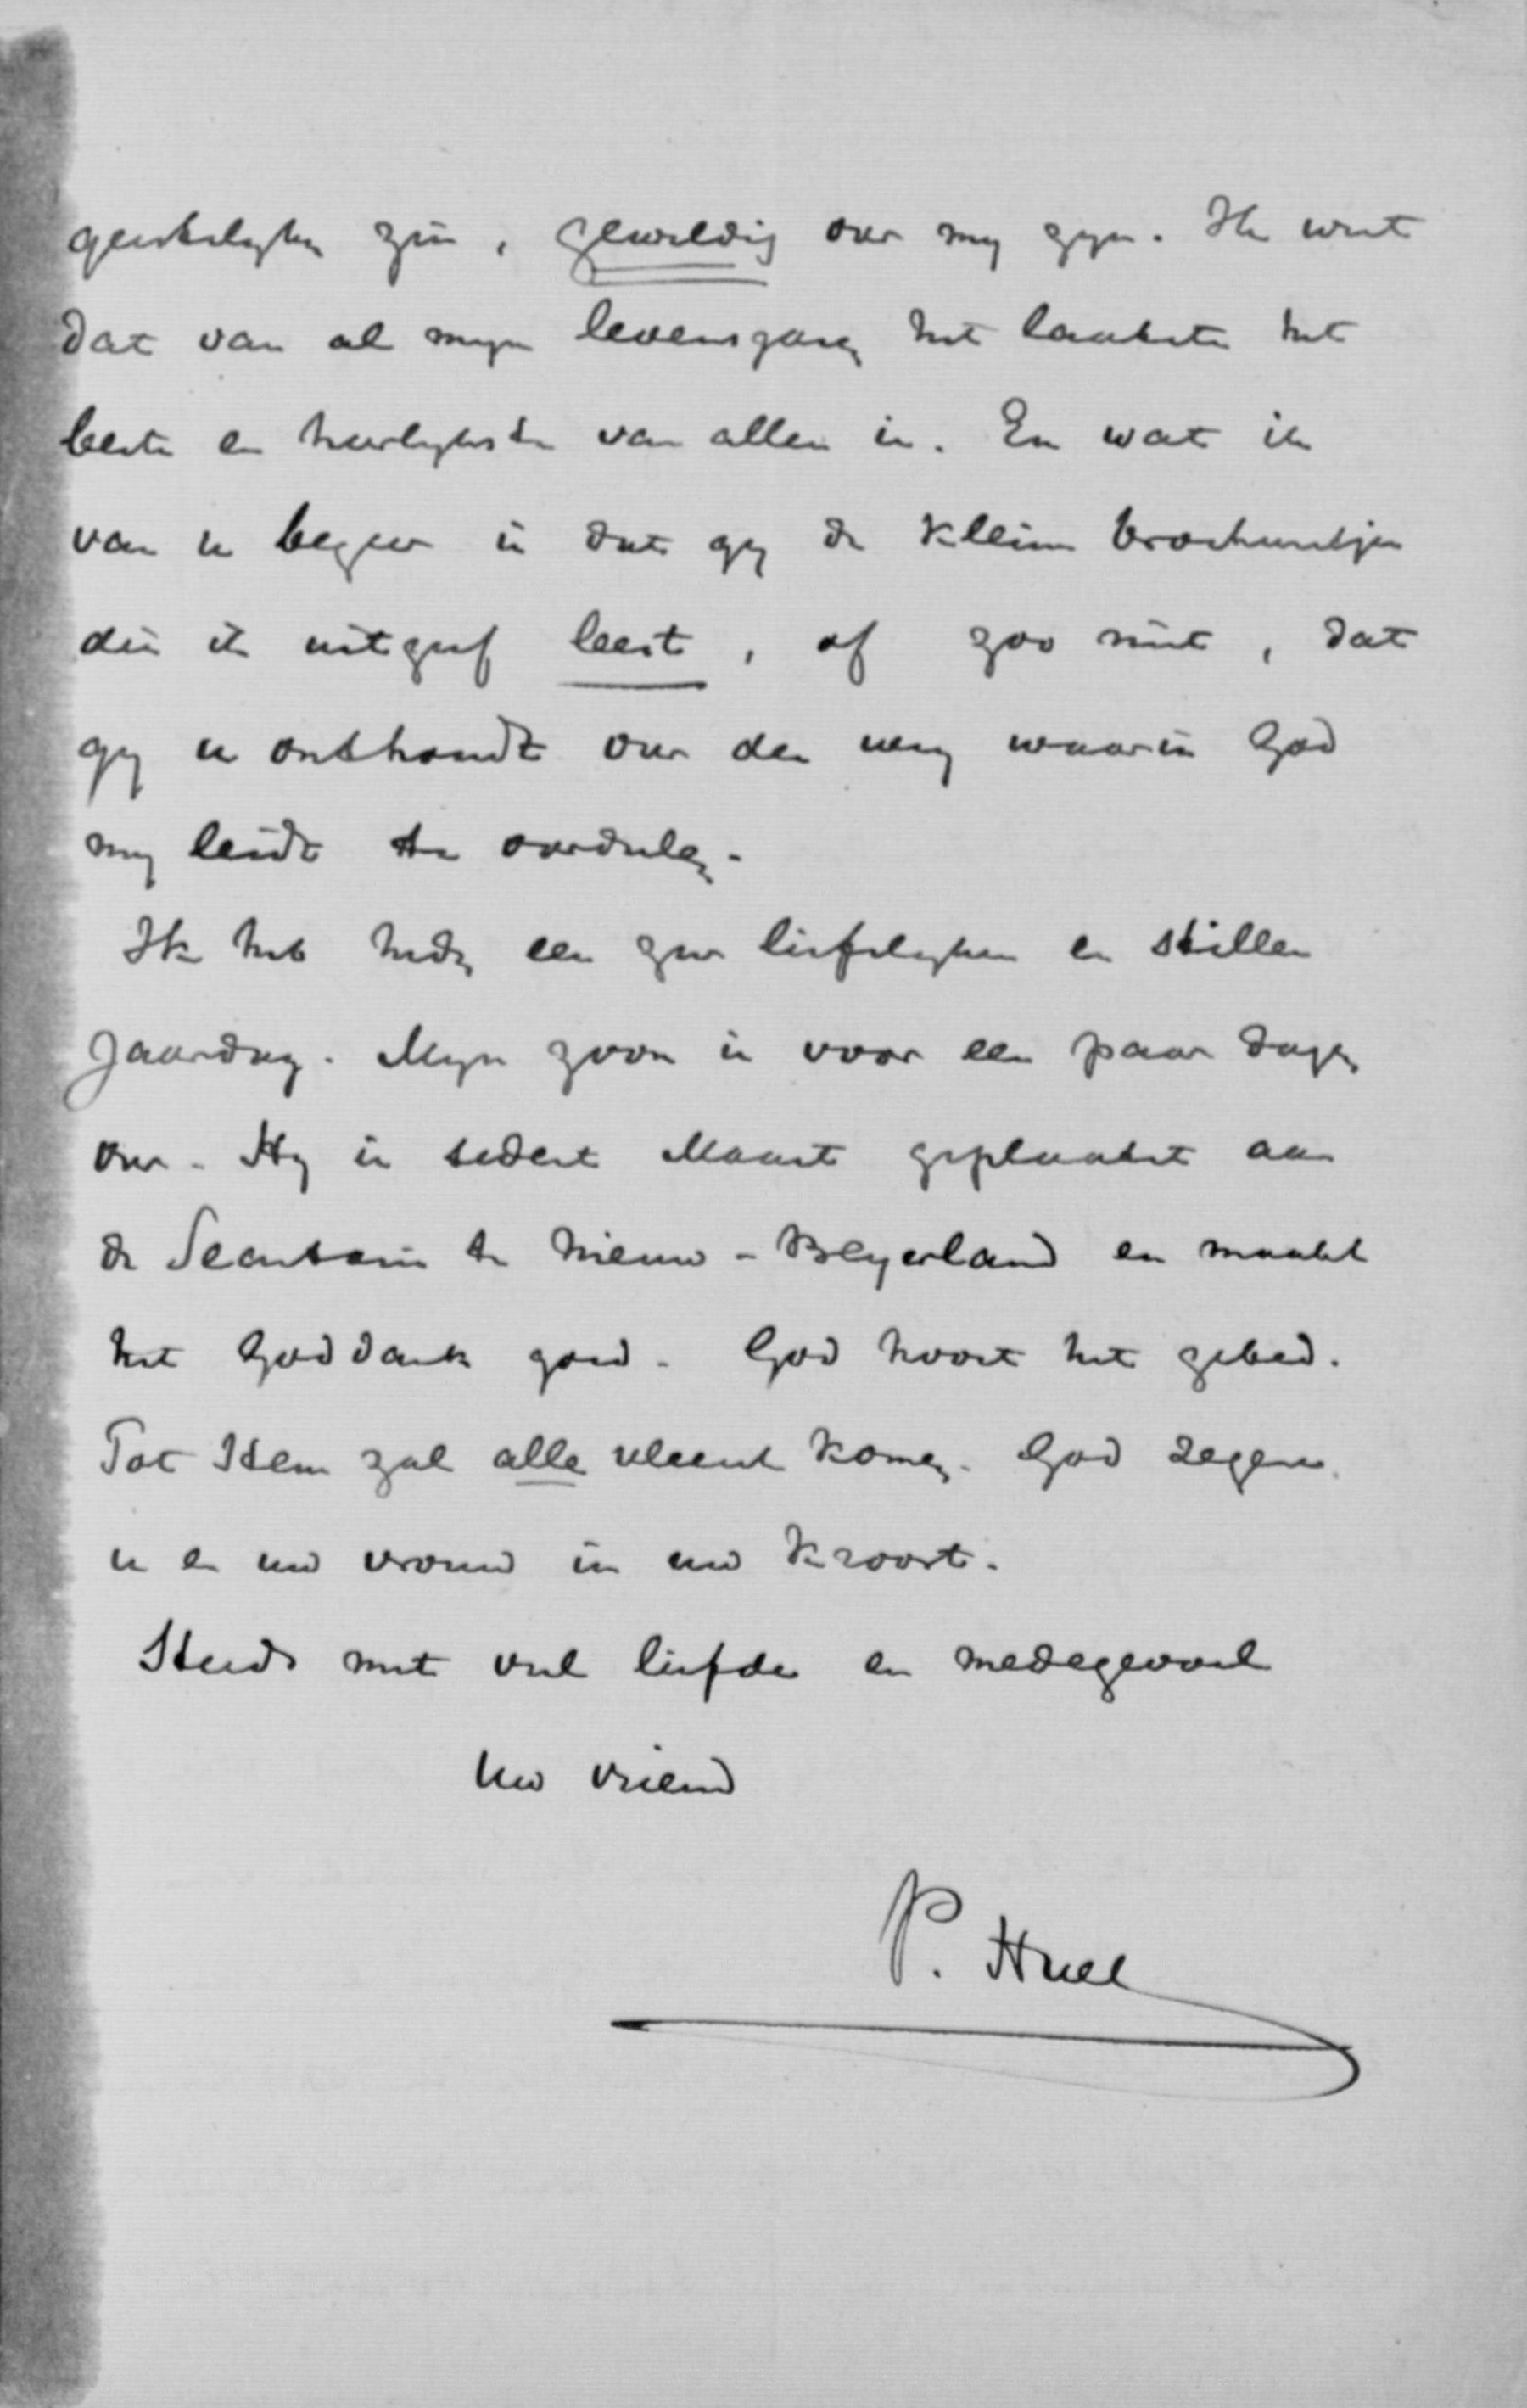 geestelyken zin, geweldig over my gyn. Ik weet
dat van al myn levensgang het laatste het
beste en heerlykste van allen is. En wat ik
van u begeer is dat gy de kleine brochuretjes
die ik uitgeef leest, of zoo niet, dat
gy u onthoudt over den weg waarin God
my leidt te oordeelen.
Ik heb heden een zeer liefelyken en stillen
Jaardag. Myn zoon is voor een paar dagen
over. Hy is sedert Maart geplaatst aan
de Secretarie te Nieuw-Beyerland en maakt
het Goddank goed. God hoort het gebed.
Tot Hem zal alle vleesch komen. God zegene
u en uw vrouw in uw kroost.
Steeds met veel liefde en medegevoel
Uw vriend
P. Huet